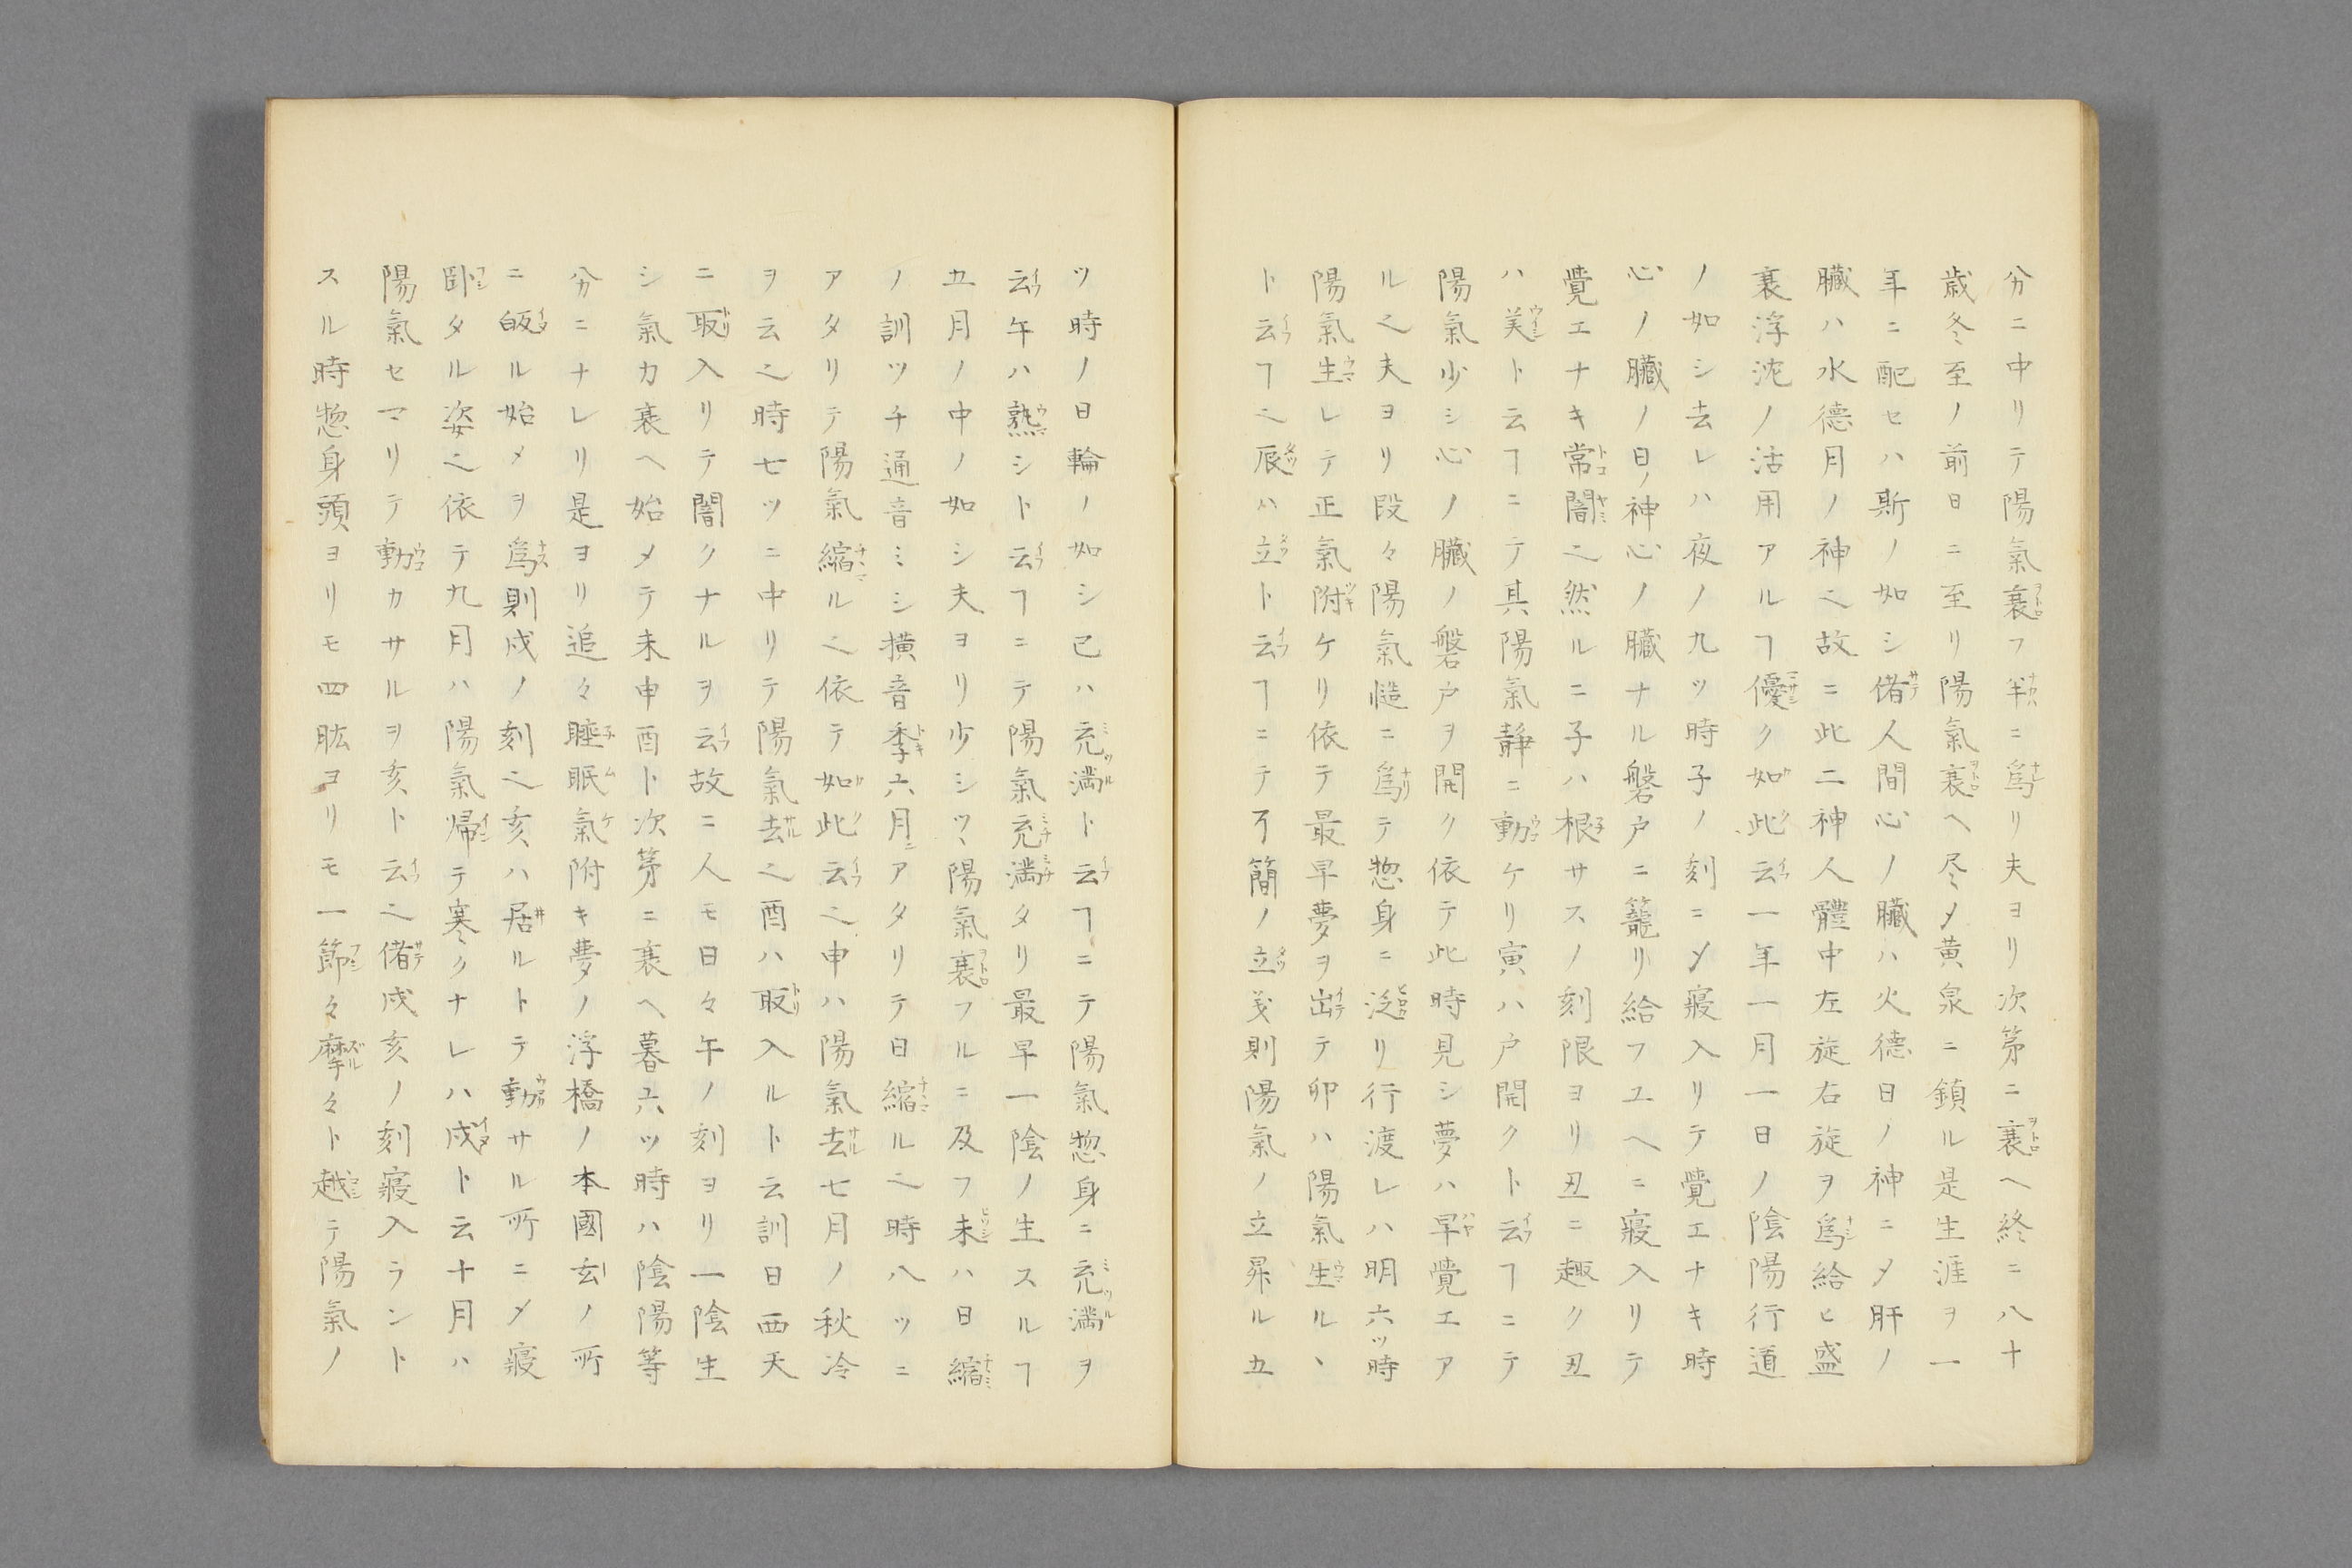 分ニ中リテ陽氣衰フ半ニ爲リ夫ヨリ次第ニ衰ヘ終ニ八十
歳冬至ノ前日ニ至リ陽氣衰ヘ尽〆黄泉ニ鎖ル是生涯ヲ一
年ニ配セハ斯ノ如シ偖人間心ノ臓ハ火德日ノ神ニ〆肝ノ
臓ハ水德月ノ神之故ニ此二神人體中左旋右旋ヲ爲給ヒ盛
衰浮沈ノ活用アルヿ優ク如此云一年一月一日ノ陰陽行道
ノ如シ去レハ夜ノ九ツ時子ノ刻ニ〆寢入リテ覺エナキ時
心ノ臓ノ日ノ神心ノ臓ナル磐戸ニ籠リ給フユヘニ寢入リテ
覺エナキ常闇之然ルニ子ハ根サスノ刻限ヨリ丑ニ趣ク丑
ハ美ト云ヿニテ其陽氣靜ニ動ケリ寅ハ戸開クト云ヿニテ
陽氣少シ心ノ臓ノ磐戸ヲ開ク依テ此時見シ夢ハ早覺エア
ル之夫ヨリ段々陽氣慥ニ爲テ惣身ニ泛リ行渡レハ明六ッ時
陽氣生レテ正氣附ケリ依テ最早夢ヲ出テ卯ハ陽氣生ルヽ
ト云ヿ之辰ハ立ト云ヿニテ不簡ノ立美則陽氣ノ立昇ル五
ツ時ノ日輪ノ如シ已ハ充満ト云ヿニテ陽氣惣身ニ充満ヲ
云午ハ熟シト云ヿニテ陽氣充満タリ最早一陰ノ生スルヿ
五月ノ中ノ如シ夫ヨリ少シツヽ陽氣衰フルニ及フ未ハ日縮
ノ訓ツチ通音ミシ横音季六月ニアタリテ日縮ル之時八ツニ
アタリテ陽氣縮ル之依テ如此云之申ハ陽氣去ル七月ノ秋冷
ヲ云之時七ツニ中リテ陽氣去之酉ハ取入ルト云訓日西天
ニ取入リテ闇クナルヲ云故ニ人モ日々午ノ刻ヨリ一陰生
シ氣カ衰ヘ始メテ未申酉ト次第ニ衰ヘ暮六ツ時ハ陰陽等
分ニナレリ是ヨリ追々睡眠氣附キ夢ノ浮橋ノ本國玄ノ所
ニ皈ル始メヲ爲則戌ノ刻之亥ハ居ルトテ動サル所ニ〆寢
臥タル姿之依テ九月ハ陽氣帰テ寒クナレハ戌ト云十月ハ
陽氣セマリテ動カサルヲ亥ト云之偖戌亥ノ刻寢入ラント
スル時惣身頭ヨリモ四肱ヨリモ一節々摩々ト越テ陽氣ノ